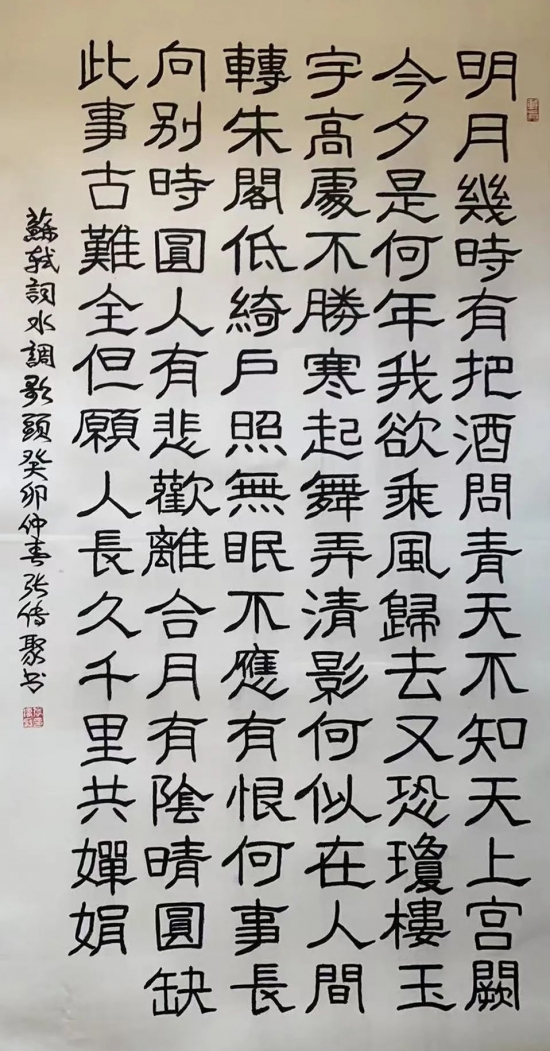 明月幾時有把酒問青天不知天上宫闕
今夕是何年我欲乘風歸去又恐瓊樓玉
宇高處不勝寒起舞弄清影何似在人間
轉朱閣低綺户照無眠不應有恨何事長
向别時圓人有悲歡離合月有陰晴圓缺
此事古難全但願人長久千里共嬋娟
蘇軾詞水調歌頭癸卯仲春张传聚书